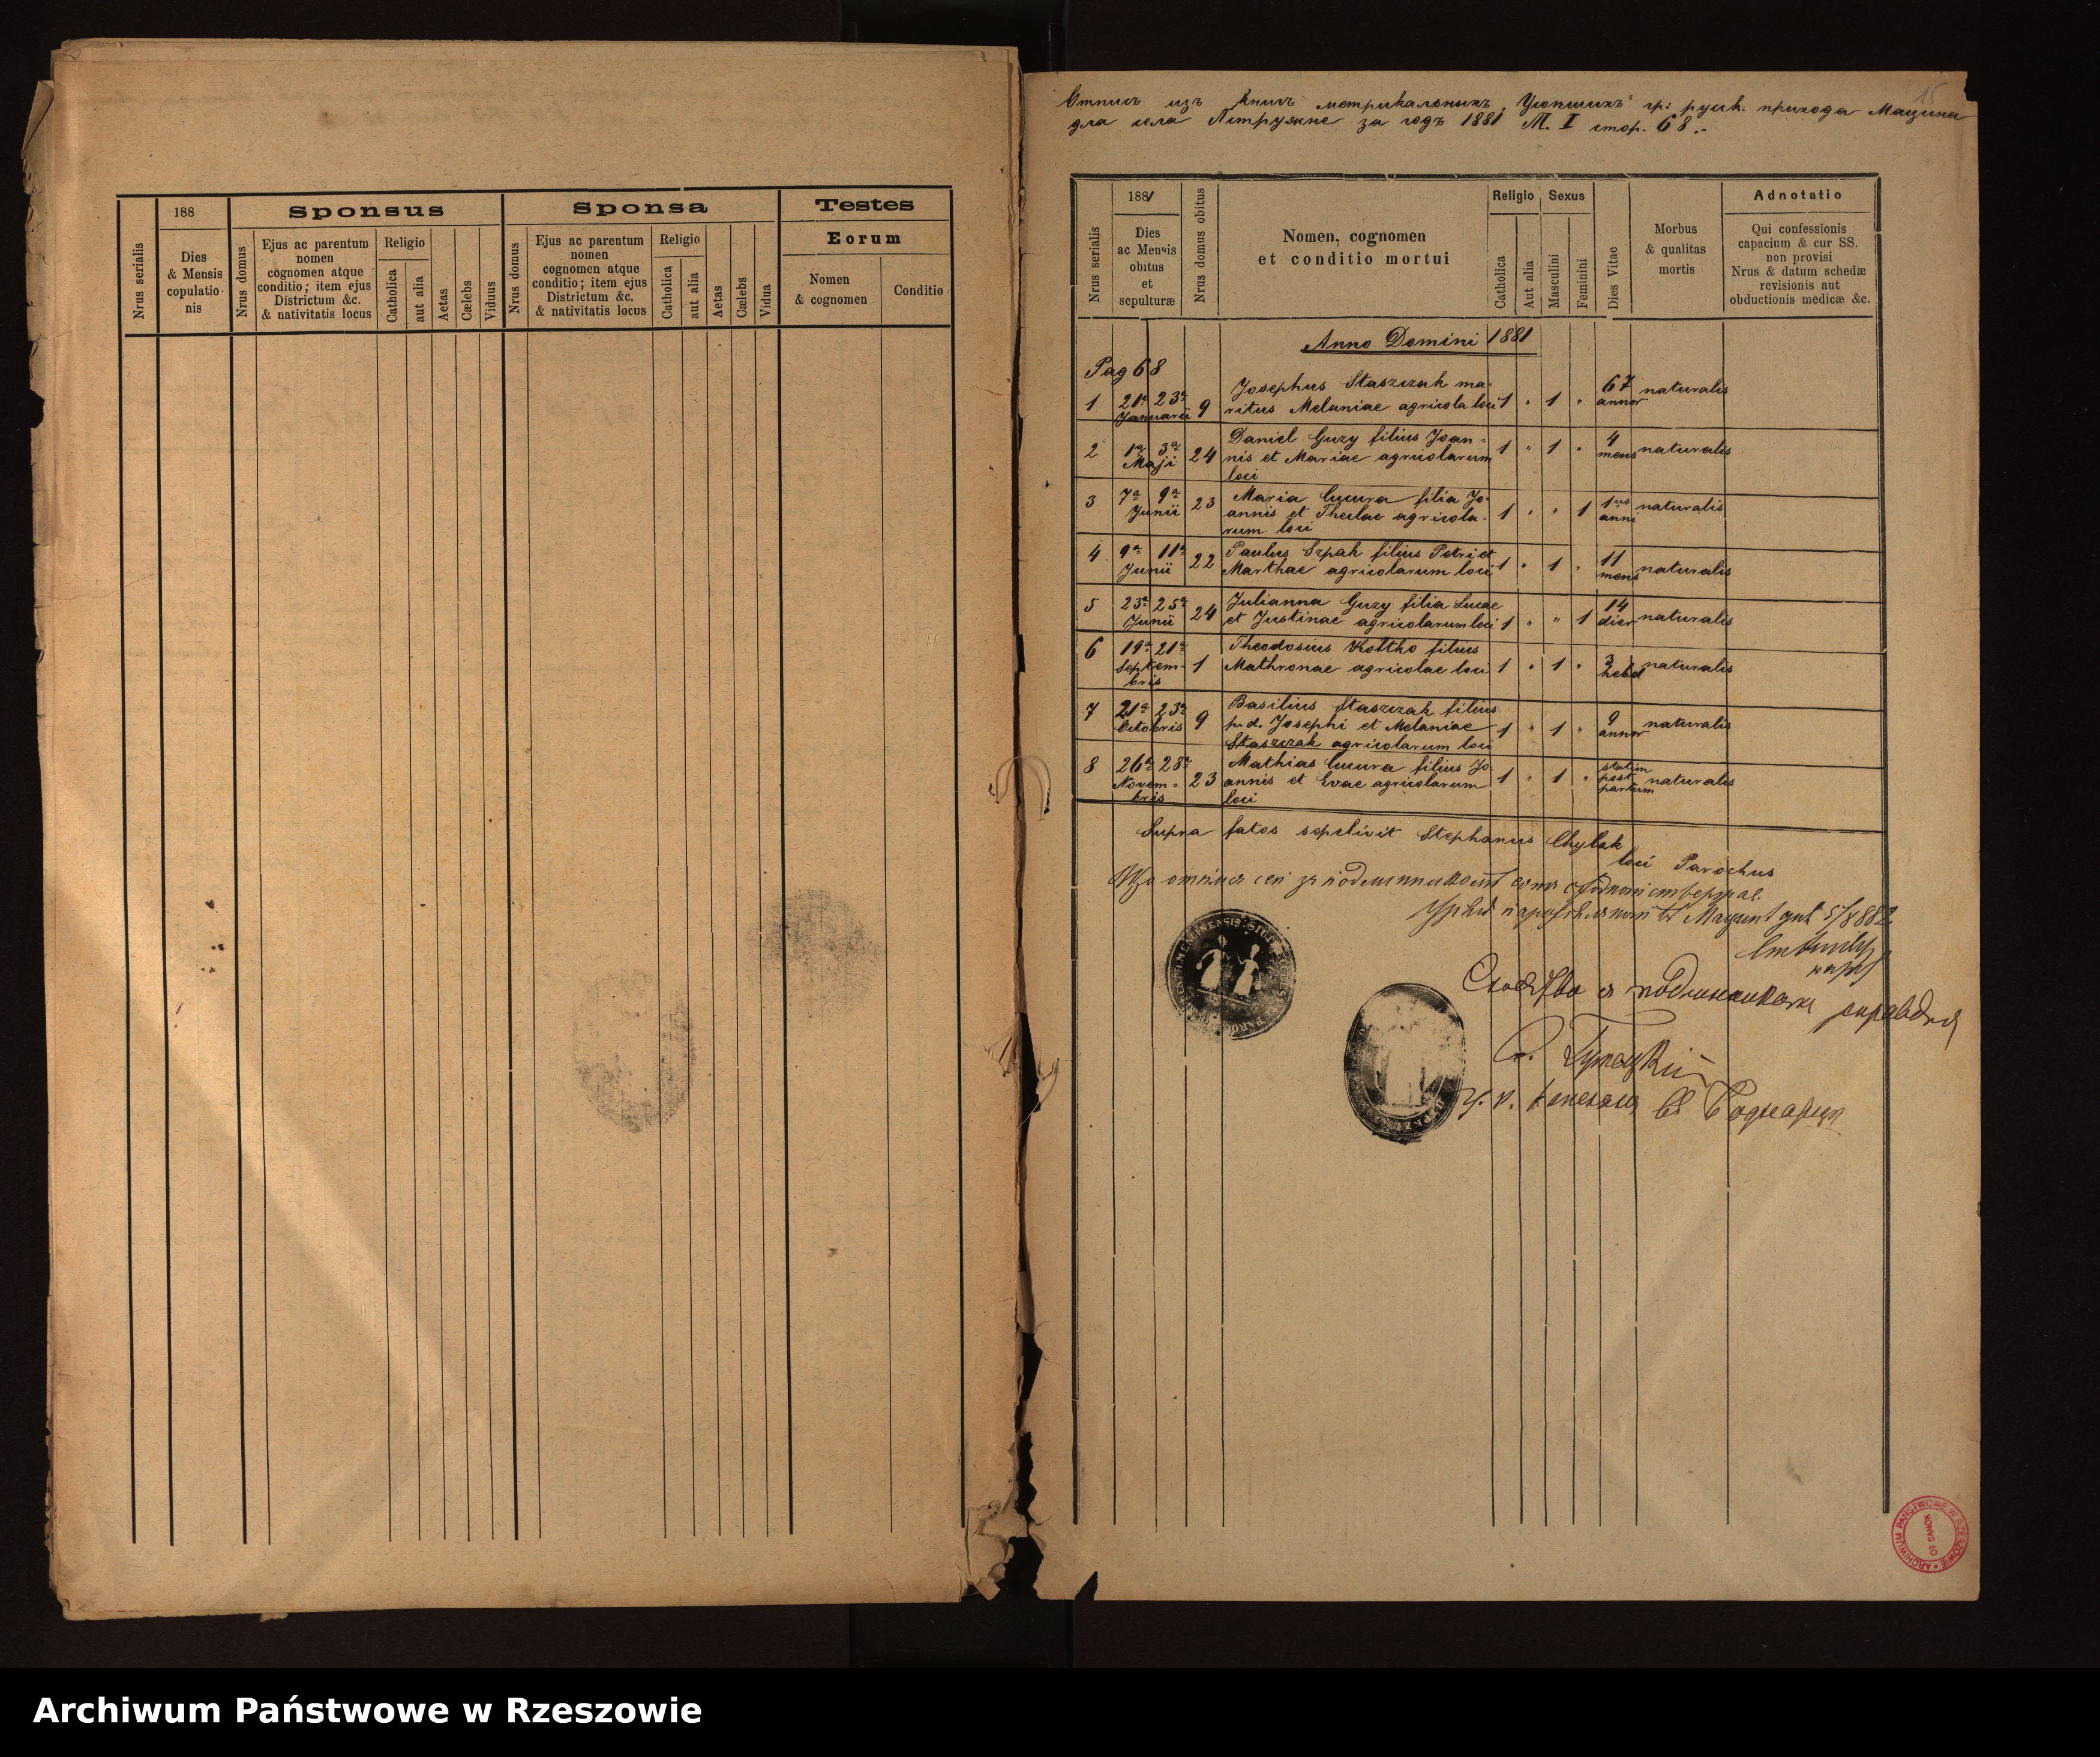 188
Sponsus
Sponsa
Testes
Eorum
Nrus serialis
Dies
& Mensis
copulatio-
nis
Nrus domus
Ejus ac parentum
nomen
cognomen atque
conditio; item ejus
Districtum &c.
& nativitatis locus
Religio
Catholica
aut alia
Aetas
Cælebs
Viduus
Nrus domus
Ejus ac parentum
nomen
cognomen atque
conditio; item ejus
Districtum &c.
& nativitatis locus
Religio
Catholica
aut alia
Aetas
Cælebs
Vidua
Nomen
& cognomen
Conditio
15
Отписъ изъ книгъ метрикальныхъ Усопшихъ гр: русk. прихода Мацина
для села Петружне за годъ 1881 Т. I стор. 68.
Nrus serialis
1881
Dies
ac Mensis
obitus
et
sepulturæ
Nrus domus obitus
Nomen, cognomen
et conditio mortui
Religio
Catholica
Aut alia
Sexus
Masculini
Feminini
Dies Vitae
Morbus
& qualitas
mortis
Adnotatio
Qui confessionis
capacium & cur SS.
non provisi
Nrus & datum schedæ
revisionis aut
obductionis medicæ &c.
Anno Domini 1881
Pag 68
1 21a 23a Januarii 9 Josephus Staszczak ma-
ritus Melaniae agricola loci 1 " 1 " 67 annor naturalis
2 1a 3a Maji 24 Daniel Guzy filius Joan-
nis et Mariae agricolarum
loci 1 " 1 " 4 mens naturalis
3 7a 9a Junii 23 Maria Cucura filia Jo-
annis et Theclae agricola-
rum loci 1 " " 1 1ius anni naturalis
4 9a 11a Junii 22 Paulus Szpak filius Petri et
Marthae agricolarum loci 1 " 1 " 11 mens naturalis
5 23a 25a Junii 24 Julianna Guzy filia Lucae
et Justinae agricolarum loci 1 " " 1 14 dier naturalis
6 19a 21a Septem-
bris 1 Theodosius Koltko filius
Mathronae agricolae loci 1 " 1 " 3 hebd naturalis
7 21a 23a Octobris 9 Basilius Staszczak filius
p. d. Josephi et Melaniae
Staszczak agricolarum loci 1 " 1 " 9 annor naturalis
8 26a 28a Novem-
bris 23 Mathias Cucura filius Jo-
annis et Evae agricolarum
loci 1 " 1 " statim post partum naturalis
Supra fatos sepelivit Stephanus Chylak
loci Parochus
ARCHIWUM PAŃSTWOWE W RZESZOWIE
Archiwum Państwowe w Rzeszowie